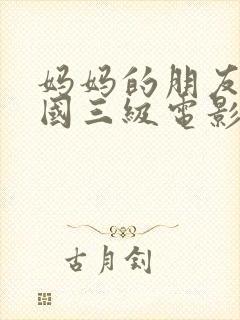 妈妈的朋友
國三級電影
古月釗